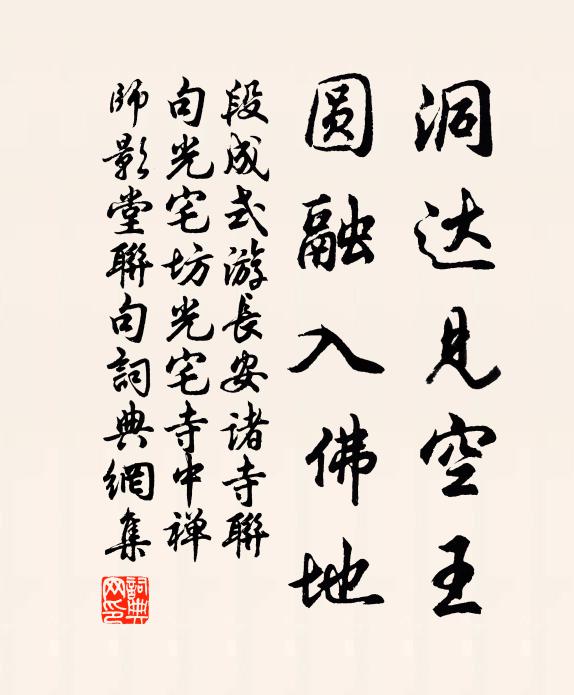 洞达見空王
圆融入佛地
段成式游長安诸寺聯
句光宅坊光宅寺中禅
師影堂聯句詞典網集
詞典
网印